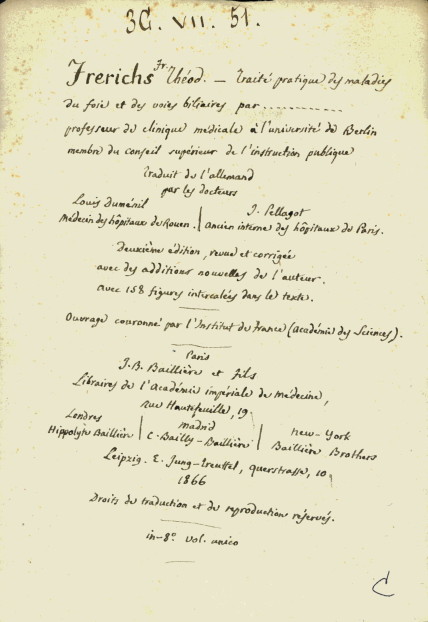 3G. VII. 51.
Frerichs Fr. Théod. — Traité pratique des maladies
du foie et des voies biliaires par ............
professeur de clinique médicale à l'université de Berlin
membre du conseil supérieur de l'instruction publique
Traduit de l'allemand
par les docteurs
Louis Duménil | J. Pellagot
Médecin des hôpitaux de Rouen. | ancien interne des hôpitaux de Paris.
Deuxième édition, revue et corrigée
avec des additions nouvelles de l'auteur.
avec 158 figures intercalées dans le texte.
Ouvrage couronné par l'Institut de France (académie des Sciences).
Paris
J. B. Baillière et fils
Libraires de l'Académie impériale de Médecine,
rue Hautefeuille, 19
Londres | Madrid | New-York
Hippolyte Baillière | C. Bailly-Baillière | Baillière Brothers
Leipzig. E. Jung-Treuttel, querstrasse, 10
1866
Droits de traduction et de reproduction réservés.
in-8º vol. unico
C